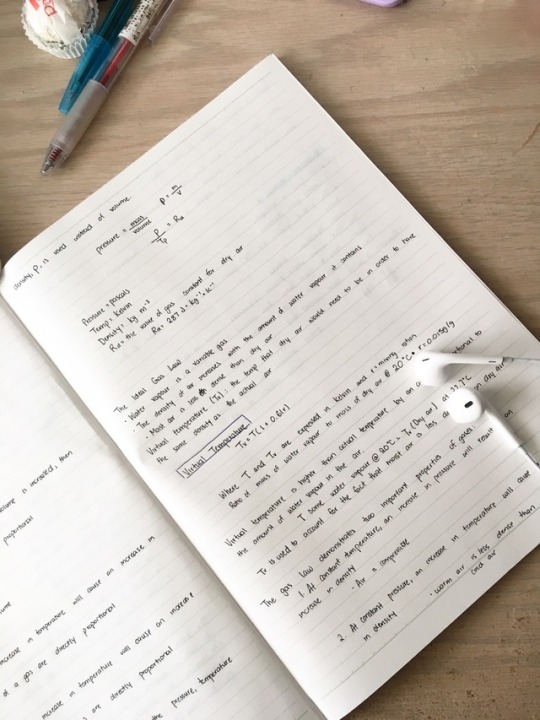 density, ρ, is used instead of volume.
pressure = mass / volume
ρ = m / V
P / Tρ = Rd
Pressure = pascals
Temp = Kelvin
Density = kg m⁻³
Rd = the value of gas constant for dry air
Rd = 287 J · kg⁻¹ · K⁻¹
The Ideal Gas Law
· Water vapour is a variable gas
· The density of air increases with the amount of water vapour it contains
· Moist air is less dense than dry air
Virtual temperature (Tv) the temp that dry air would need to be in order to have
the same density as the actual air
Virtual Temperature
Tv = T(1 + 0.61r)
Where T and Tv are expressed in Kelvin and r = mixing ratio
Ratio of mass of water vapour to mass of dry air @ 20°C r = 0.015g/g
Virtual temperature is higher than actual temperature by an
the amount of water vapour in the air.
T some water vapour @ 20°C = Tv (Dry air) at
Tv is used to account for the fact that moist air is less dense than dry air
The gas law demonstrates two important properties of gases
1. At constant temperature, an increase in pressure will result in an
increase in density
· Air is compressible
2. At constant pressure, an increase in temperature will cause
in density
· warm air is less dense than
cold air
volume is increased, than
proportional
increase in temperature will cause an increase in
of a gas are directly proportional
increase in temperature will cause an increase
are directly proportional
the pressure, temperature